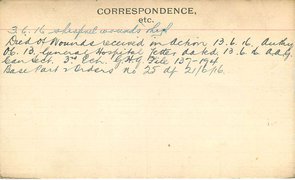 CORRESPONDENCE,
etc.
3.6.16 shrapnel wounds thigh
Died of Wounds received in action 13.6.16. Authy
O.C. 13. General Hospital letter dated 13.6.16 A.A.G.
Can Sect. 3rd Ech. G.H.Q. File 137-194
Base Part 2 Orders No 25 of 21/6/16.